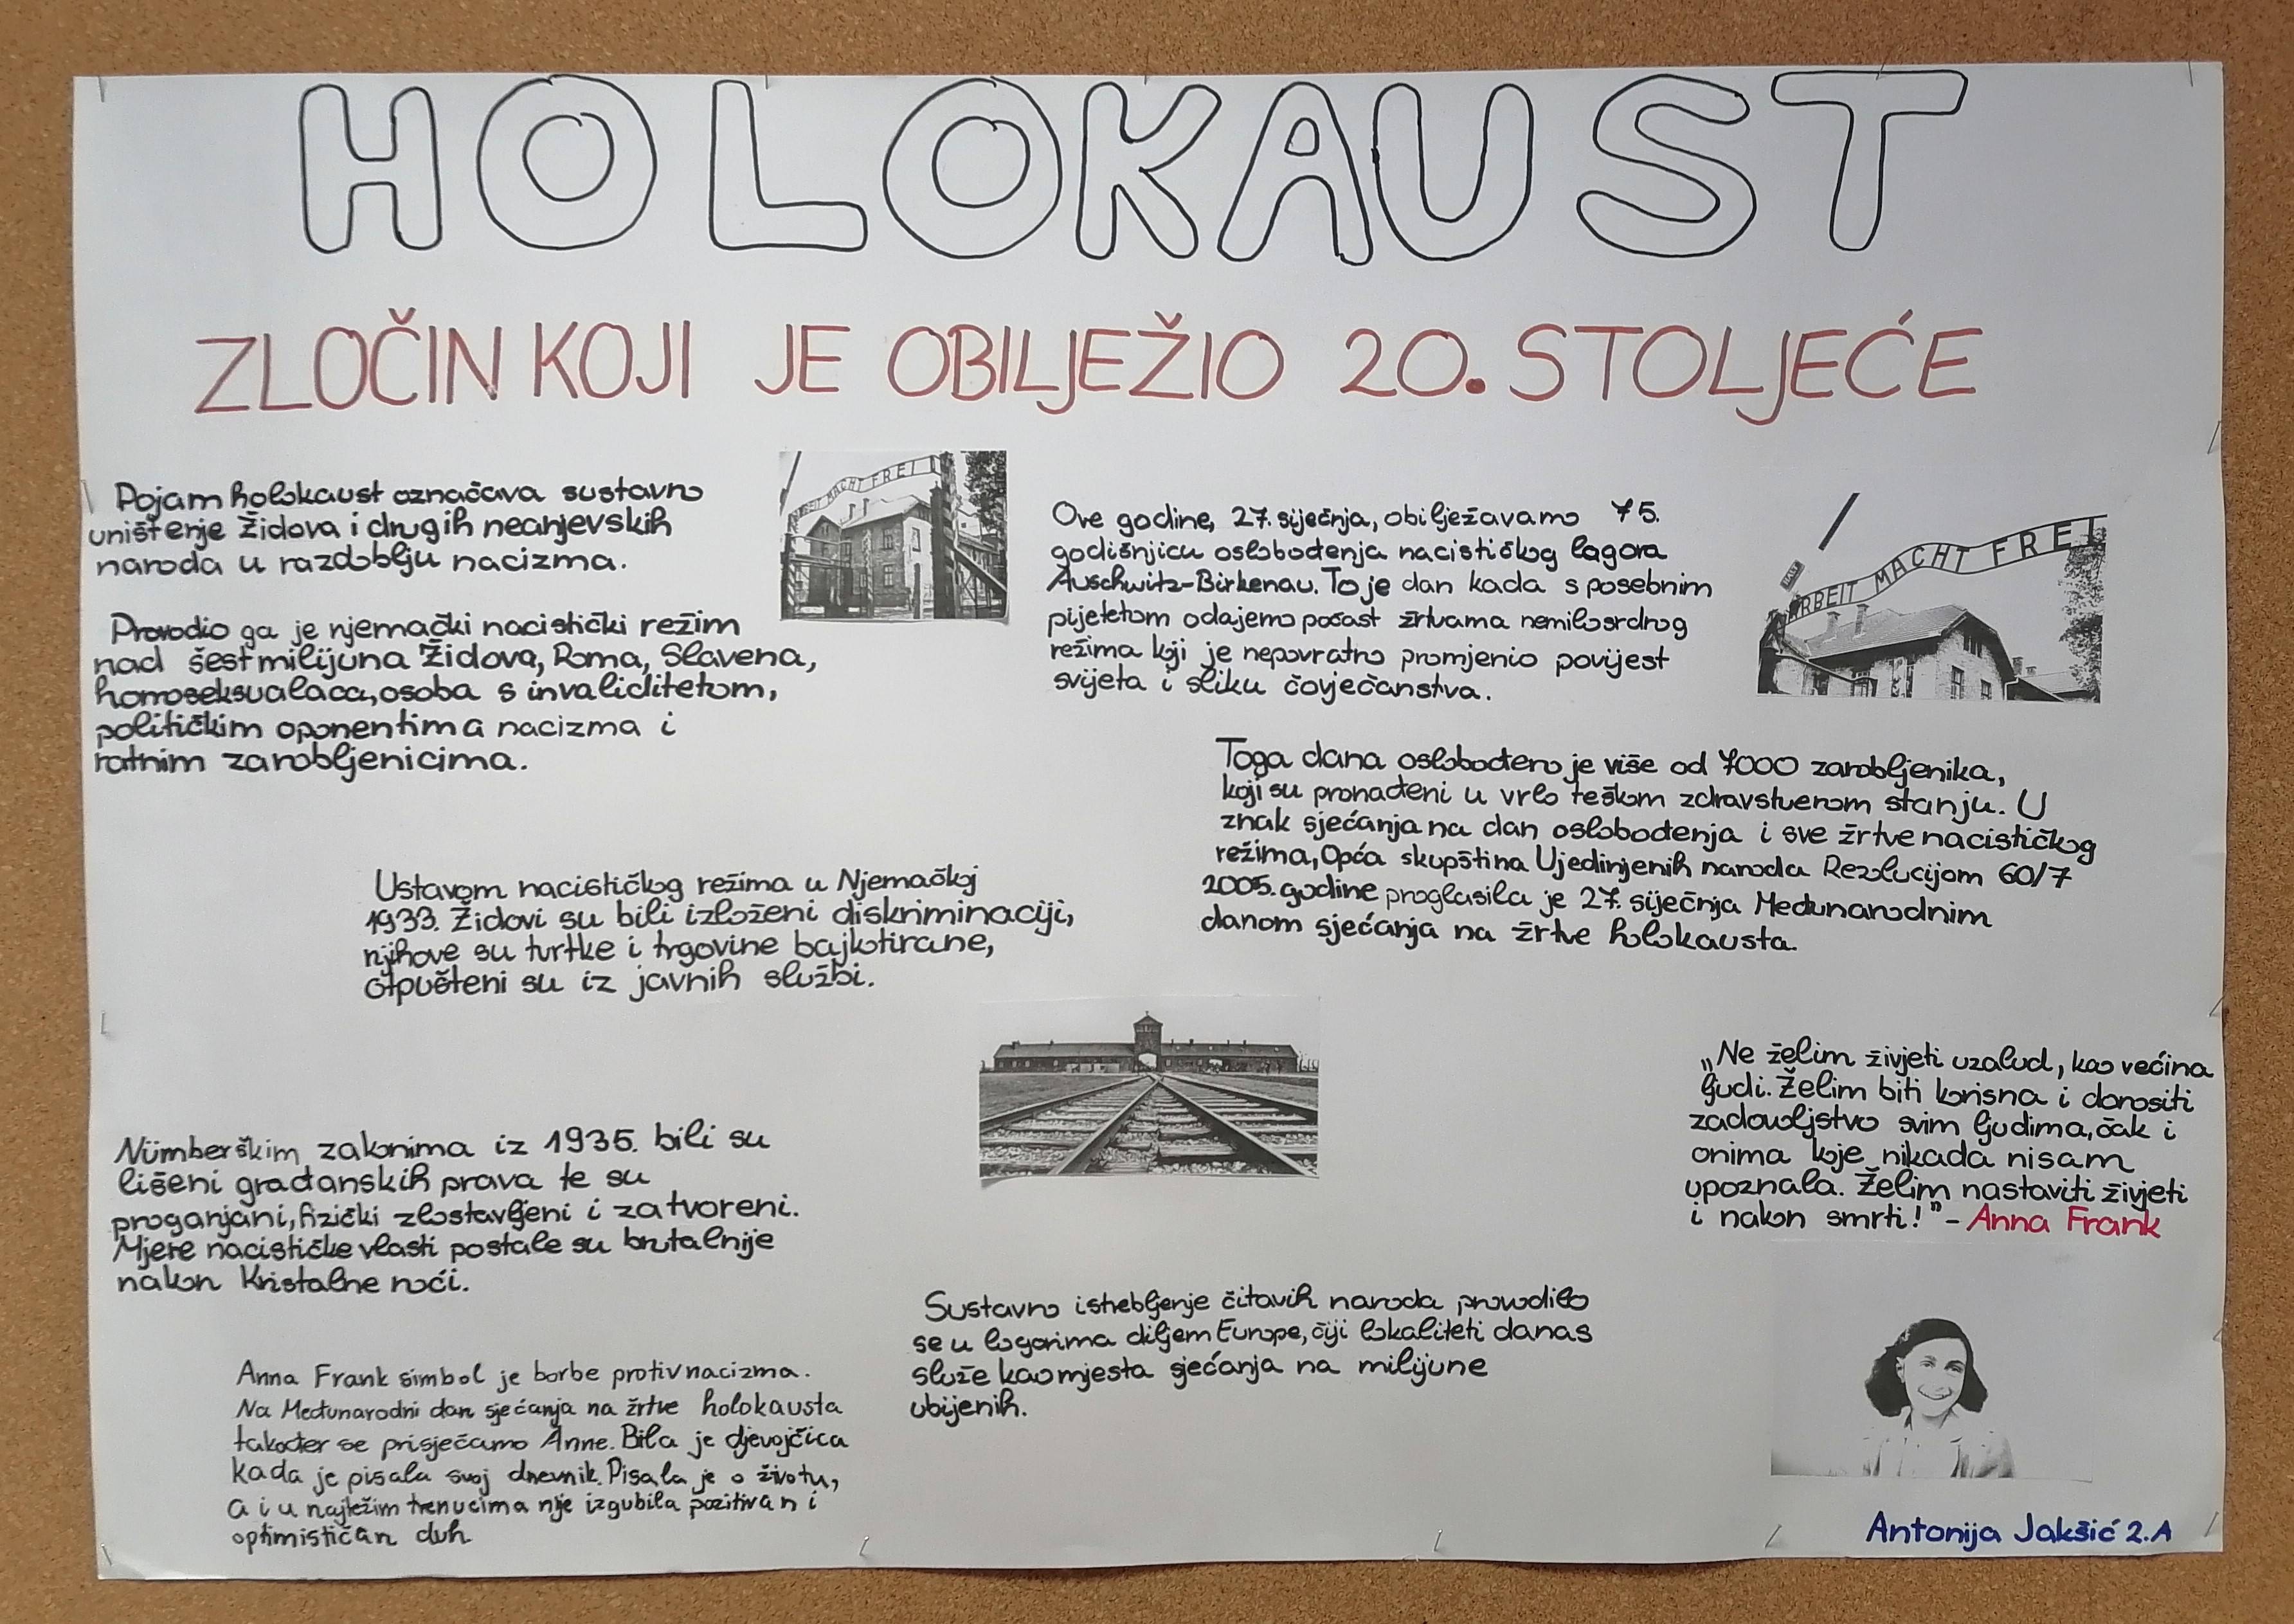 HOLOKAUST
ZLOČIN KOJI JE OBILJEŽIO 20. STOLJEĆE
Pojam holokaust označava sustavno
uništenje Židova i drugih nearijevskih
naroda u razdoblju nacizma.
Provodio ga je njemački nacistički režim
nad šest milijuna Židova, Roma, Slavena,
homoseksualaca, osoba s invaliditetom,
političkim oponentima nacizma i
ratnim zarobljenicima.
ARBEIT MACHT FREI
Ove godine, 27. siječnja, obilježavamo 75.
godišnjicu oslobođenja nacističkog logora
Auschwitz-Birkenau. To je dan kada s posebnim
pijetetom odajemo počast žrtvama nemilosrdnog
režima koji je nepovratno promjenio povijest
svijeta i sliku čovječanstva.
ARBEIT MACHT FREI
Toga dana oslobođeno je više od 7000 zarobljenika,
koji su pronađeni u vrlo teškom zdravstvenom stanju. U
znak sjećanja na dan oslobođenja i sve žrtve nacističkog
režima, Opća skupština Ujedinjenih naroda Rezolucijom 60/7
2005. godine proglasila je 27. siječnja Međunarodnim
danom sjećanja na žrtve holokausta.
Ustavom nacističkog režima u Njemačkoj
1933. Židovi su bili izloženi diskriminaciji,
njihove su tvrtke i trgovine bajkotirane,
otpušteni su iz javnih službi.
Nürnberškim zakonima iz 1935. bili su
lišeni građanskih prava te su
proganjani, fizički zlostavljeni i zatvoreni.
Mjere nacističke vlasti postale su brutalnije
nakon Kristalne noći.
„Ne želim živjeti uzalud, kao većina
ljudi. Želim biti korisna i donositi
zadovoljstvo svim ljudima, čak i
onima koje nikada nisam
upoznala. Želim nastaviti živjeti
i nakon smrti!" - Anna Frank
Anna Frank simbol je borbe protiv nacizma.
Na Međunarodni dan sjećanja na žrtve holokausta
također se prisjećamo Anne. Bila je djevojčica
kada je pisala svoj dnevnik. Pisala je o životu,
a i u najtežim trenucima nije izgubila pozitivan i
optimističan duh.
Sustavno istrebljenje čitavih naroda provodilo
se u logorima diljem Europe, čiji lokaliteti danas
služe kao mjesta sjećanja na milijune
ubijenih.
Antonija Jakšić 2.A